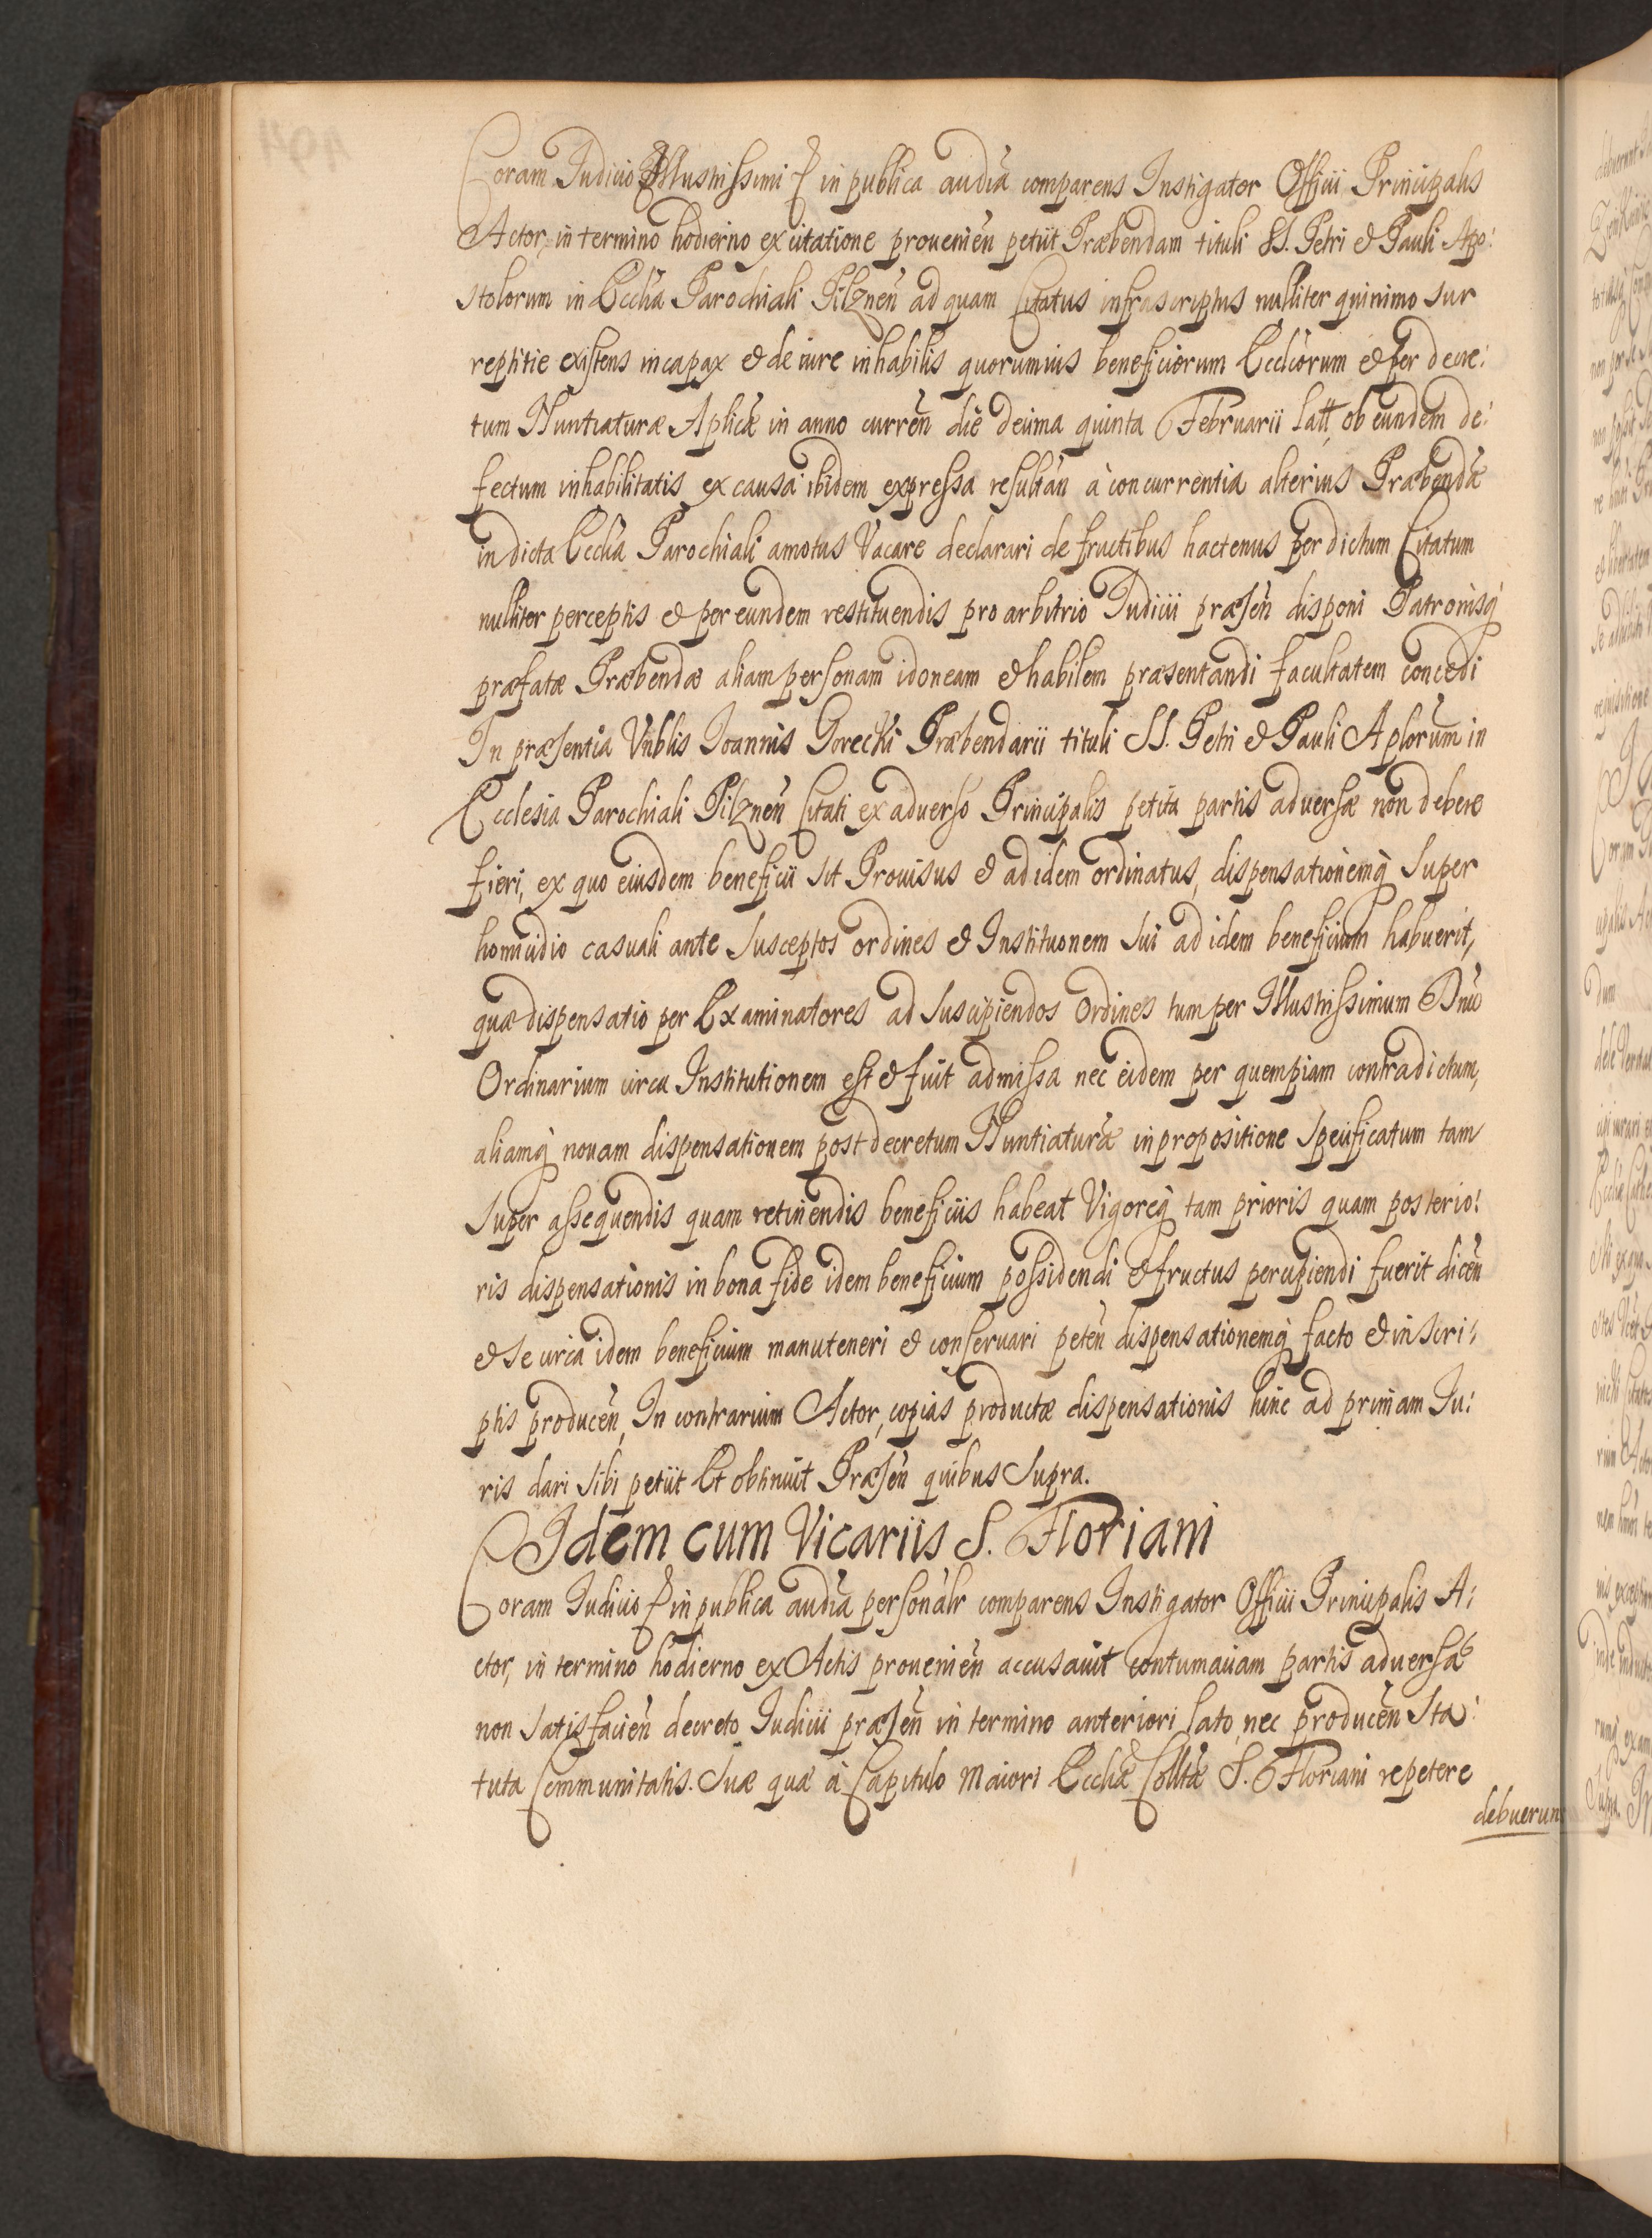 Coram Iudicio Illustrissimi & in publica audia comparens Instigator Officii Principalis
Actor, in termino hodierno ex citatione prouenien petiit Præbendam tituli SS. Petri et Pauli Apo:
stolorum in Ecclia Parochiali Pilznen ad quam Citatus infrascriptus nulliter quinimo sur
reptitie existens incapax et de iure inhabilis quorumuis beneficiorum Ecclicorum et per decre:
tum Nuntiaturæ Aplicæ in anno curren die decima quinta Februarii latt, ob eundem de:
fectum inhabilitatis ex causa ibidem expressa resultan à concurrentia alterius Præbendæ
in dicta Ecclia Parochiali amotus Vacare declarari de fructibus hactenus per dictum Citatum
nulliter perceptis et per eundem restituendis pro arbitrio Iudicii præsen disponi Patronisq
præfatæ Præbendæ aliam personam idoneam et habilem præsentandi facultatem concedi
In præsentia Vnblis Ioannis Gorecki Præbendarii tituli SS. Petri et Pauli Aplorum in
Ecclesia Parochiali Pilznen Citati ex aduerso Principalis petita partis aduersæ non debere
fieri, ex quo eiusdem beneficii sit Prouisus et ad idem ordinatus, dispensationemq super
homicidio casuali ante susceptos ordines et Instituonem sui ad idem beneficium habuerit,
quæ dispensatio per Examinatores ad suscipiendos Ordines tum per Illustrissimum Dnu
Ordinarium circa Institutionem est et fuit admissa nec eidem per quempiam contradictum,
aliamq nouam dispensationem post decretum Nuntiaturæ in propositione specificatum tam
super assequendis quam retinendis beneficiis habeat Vigoreq tam prioris quam posterio:
ris dispensationis in bona fide idem beneficium possidendi et fructus percipiendi fuerit dicen
et se circa idem beneficium manuteneri et conseruari peten dispensationemq facto et in scri:
ptis producen, In contrarium Actor, copias productæ dispensationis hinc ad primam Iu:
ris dari sibi petiit Et obtinuit Præsen quibus supra.
Idem cum Vicariis S. Floriani
Coram Iudicio & in publica audia personalr comparens Instigator Officii Principalis A:
ctor, in termino hodierno ex Actis prouenien accusauit contumaciam partis aduersæ
non satisfacien decreto Iudicii præsen in termino anteriori lato, nec producen Sta:
tuta Communitatis suæ quæ à Capitulo Maiori Eccliæ Colltæ S. Floriani repetere
debuerun